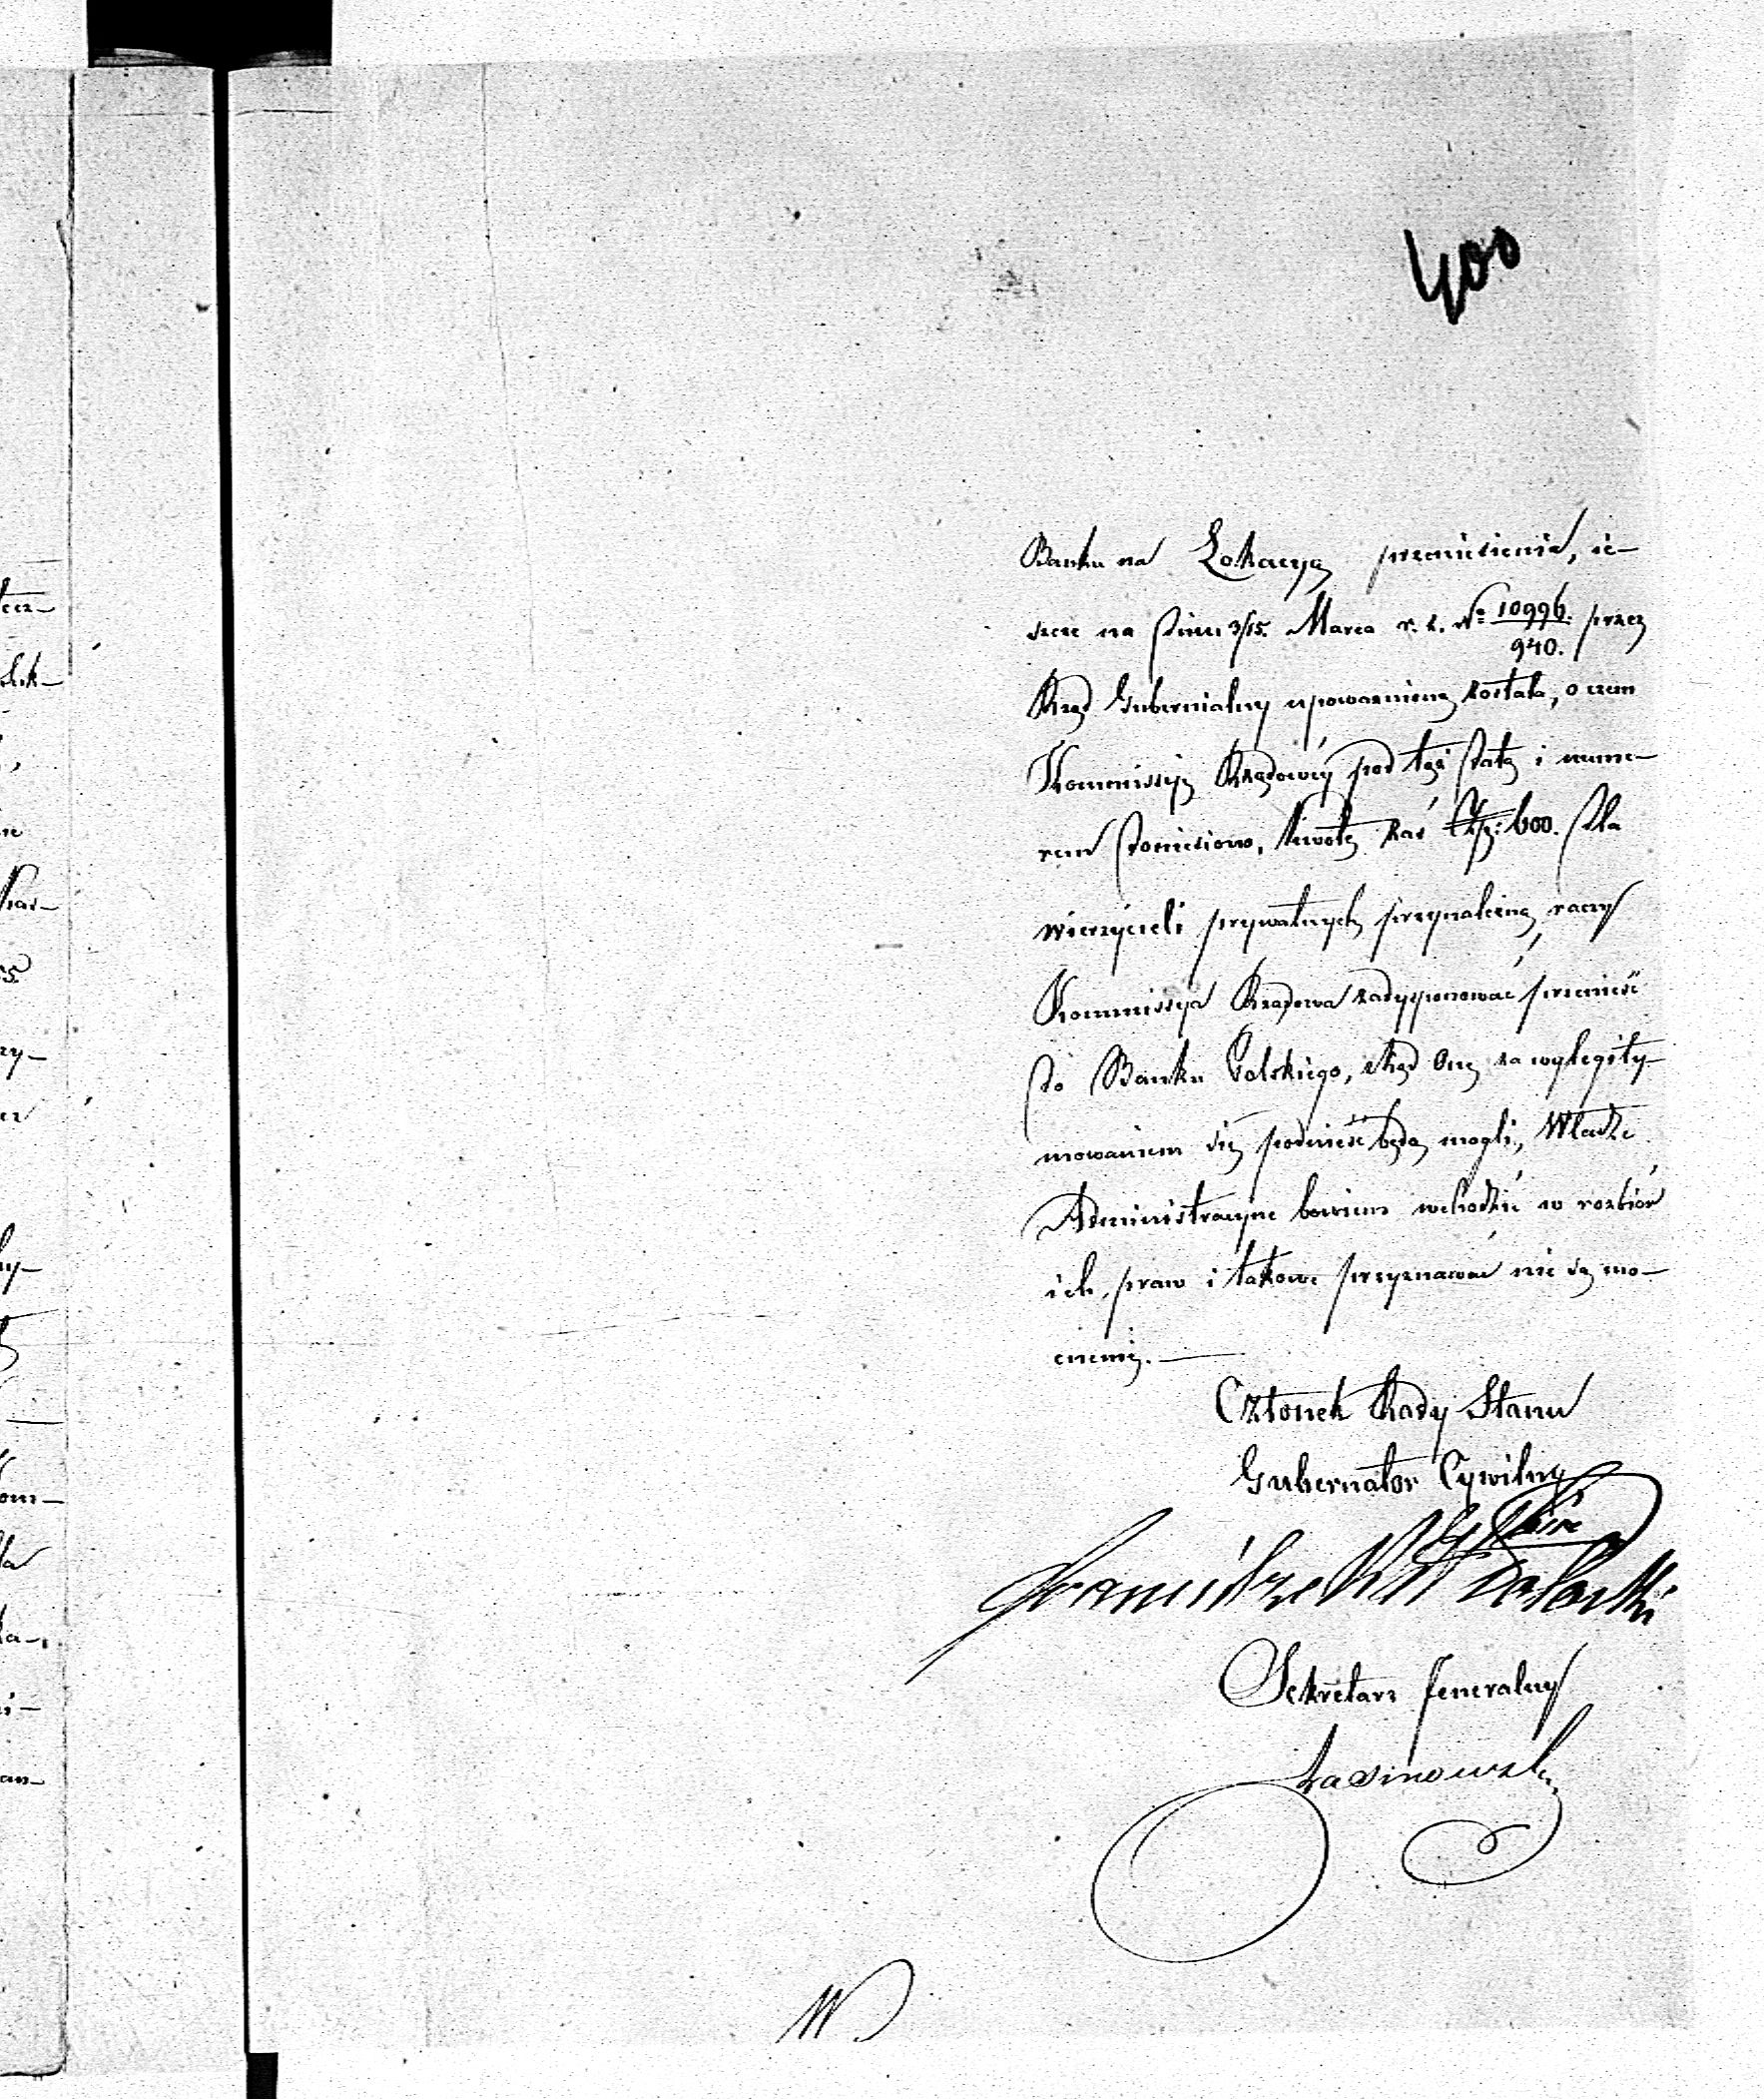 400
Banku na Lokacyą przeniesienia, ie-
szcze na dniu 3/15. Marca r. b. N<sup>o</sup> 10996./940. przez
Rząd Gubernialny upoważnioną została, o czem
Kommissyą Rządowéy pod tąż datą i nume-
rem doniesiono, kwotę zaś Złp: 600. dla
wierzycieli prywatnych przynależną raczy
Kommissya Rządowa zadysponować przenieść
do Banku Polskiego, zkąd Oną za wylegity-
mowaniem się podnieść będą mogli, Władze
Administracyjne bowiem wchodzić w rozbiór
ich praw i takowe przyznawać nie są mo-
cnemi.
Członek Rady Stanu
Gubernator Cywilny
Sekretarz Jeneralny